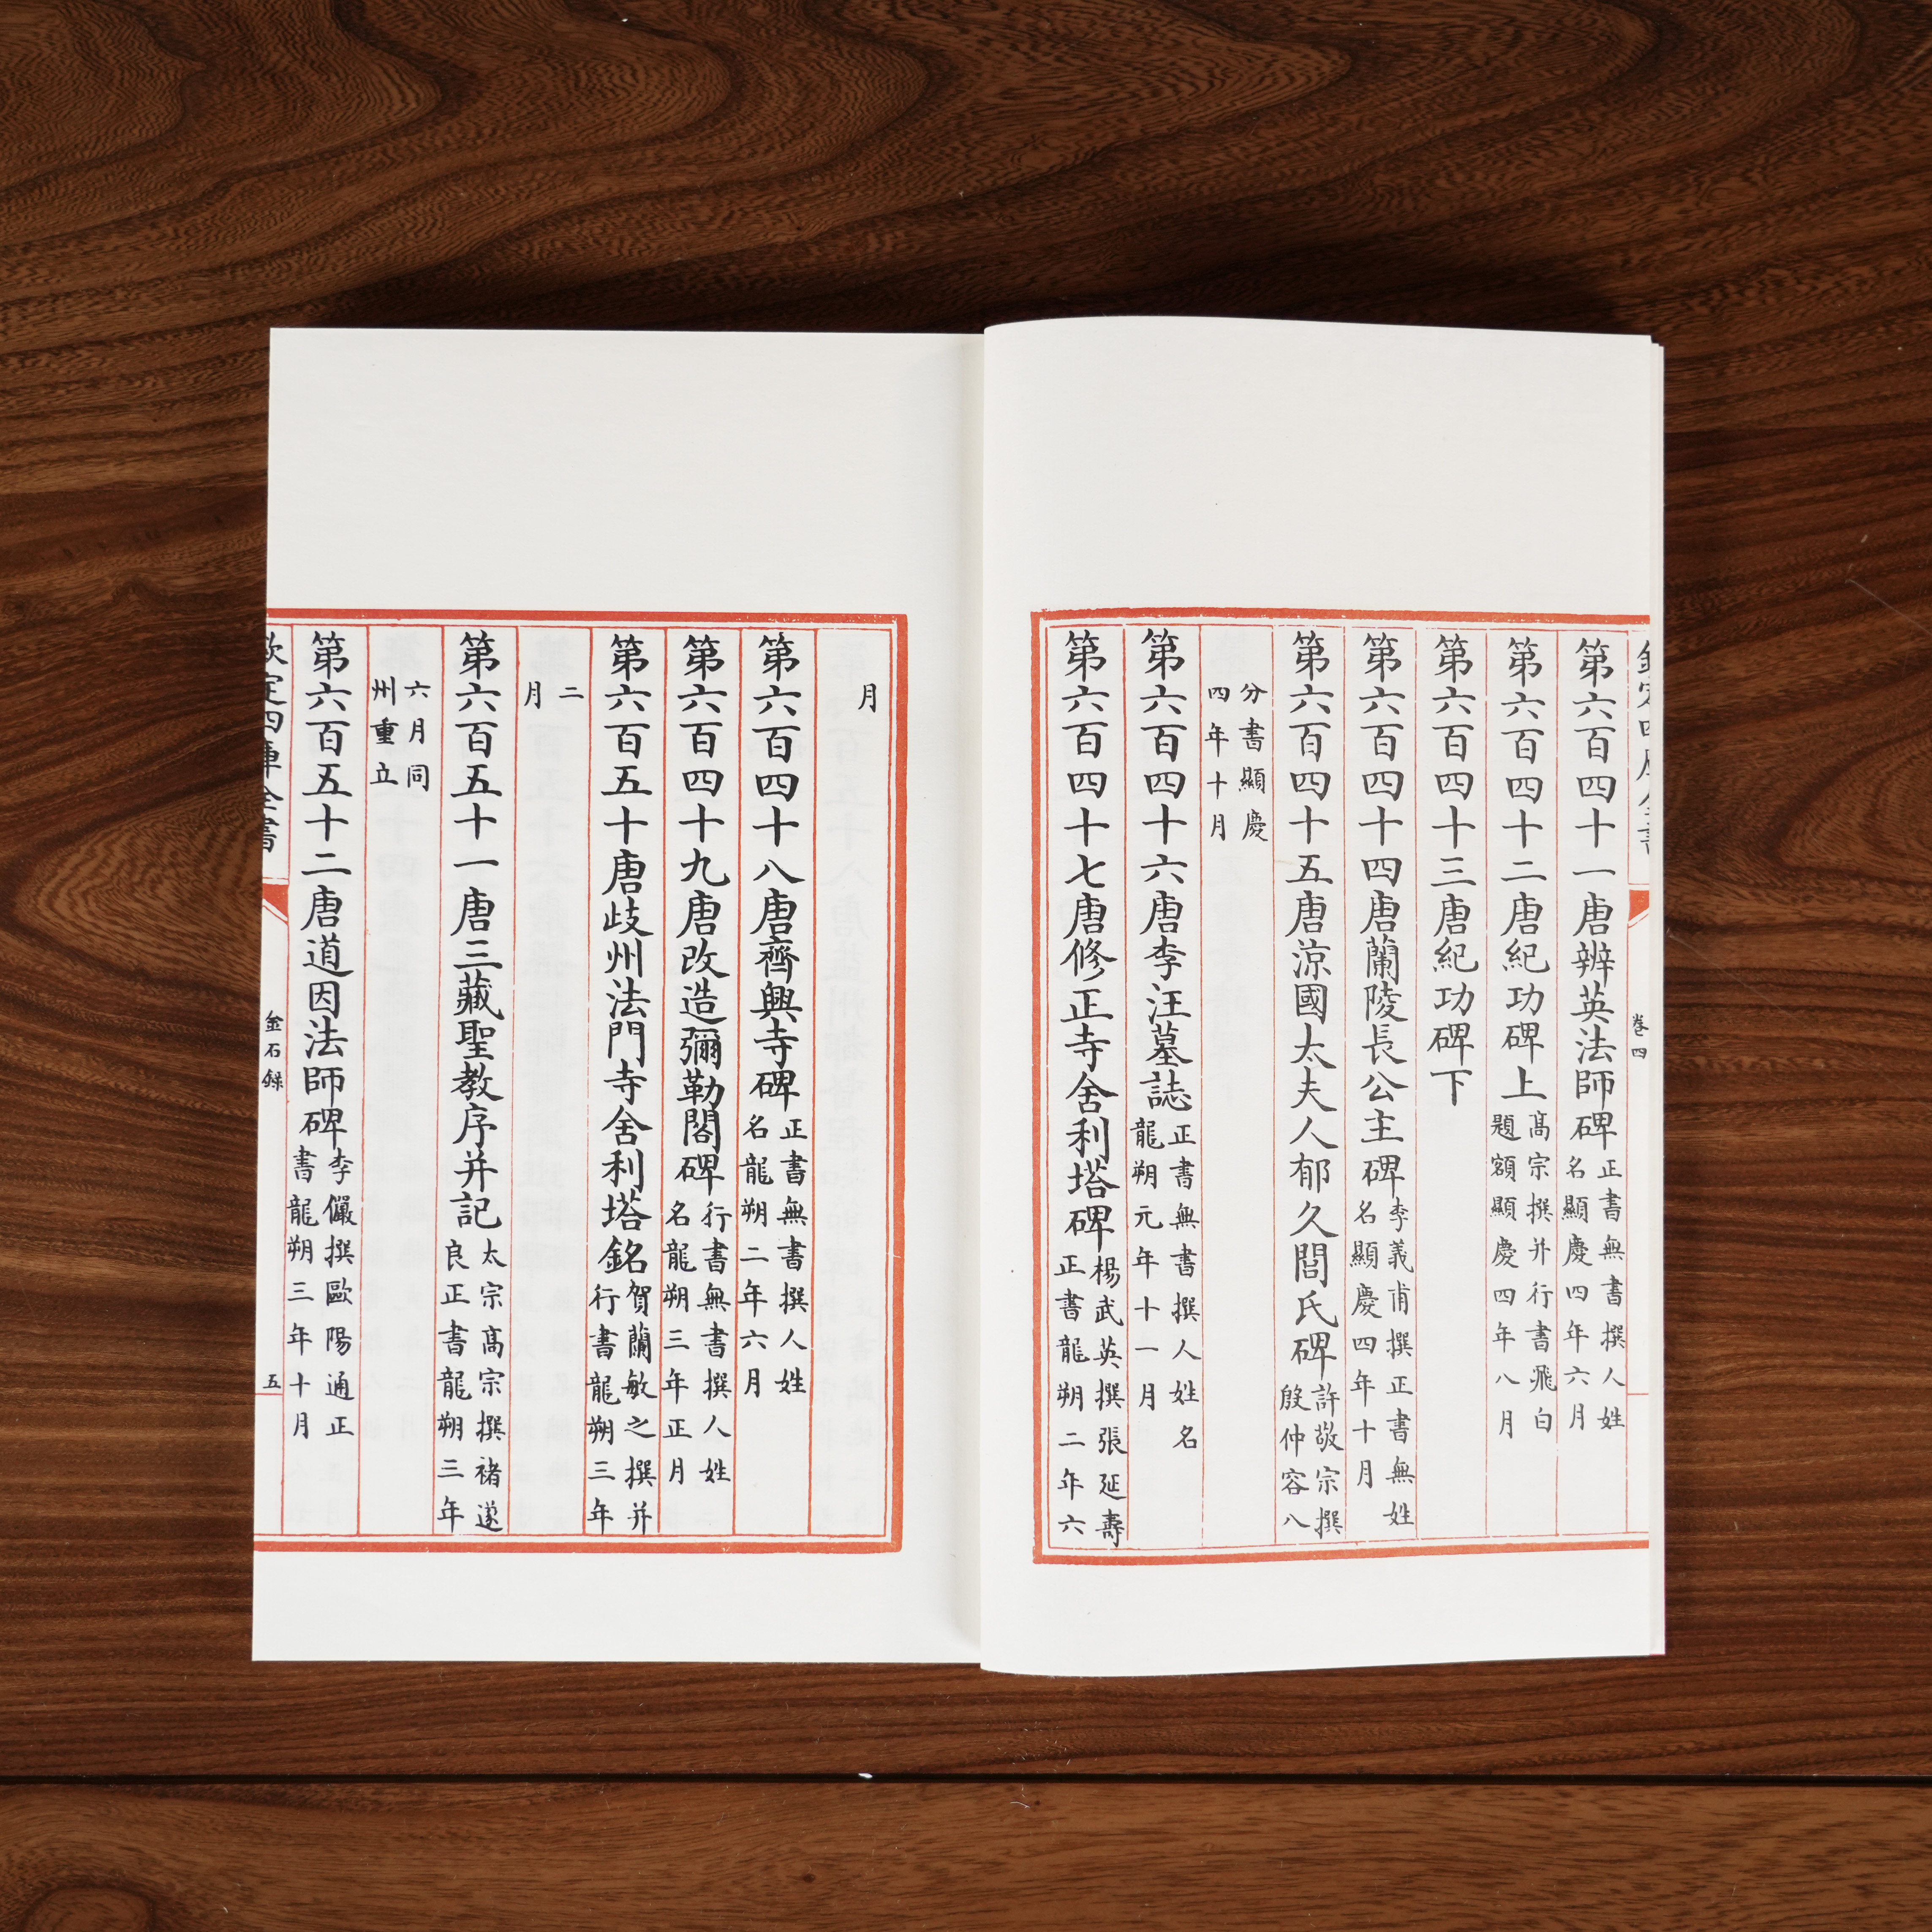 欽定四庫全書
卷四
第六百四十一唐辨英法師碑正書無書撰人姓名顯慶四年六月
第六百四十二唐紀功碑上高宗撰并行書飛白題額顯慶四年八月
第六百四十三唐紀功碑下
第六百四十四唐蘭陵長公主碑李義甫撰正書無姓名顯慶四年十月
第六百四十五唐涼國太夫人郁久閭氏碑許敬宗撰殷仲容八
分書顯慶四年十月
第六百四十六唐李汪墓誌正書無書撰人姓名龍朔元年十一月
第六百四十七唐修正寺舍利塔碑楊武英撰張延壽正書龍朔二年六
月
第六百四十八唐齊興寺碑正書無書撰人姓名龍朔二年六月
第六百四十九唐改造彌勒閣碑行書無書撰人姓名龍朔三年正月
第六百五十唐歧州法門寺舍利塔銘賀蘭敏之撰并行書龍朔三年
二月
第六百五十一唐三藏聖教序并記太宗高宗撰褚遂良正書龍朔三年
六月同州重立
第六百五十二唐道因法師碑李儼撰歐陽通正書龍朔三年十月
欽定四庫全書
金石錄
五